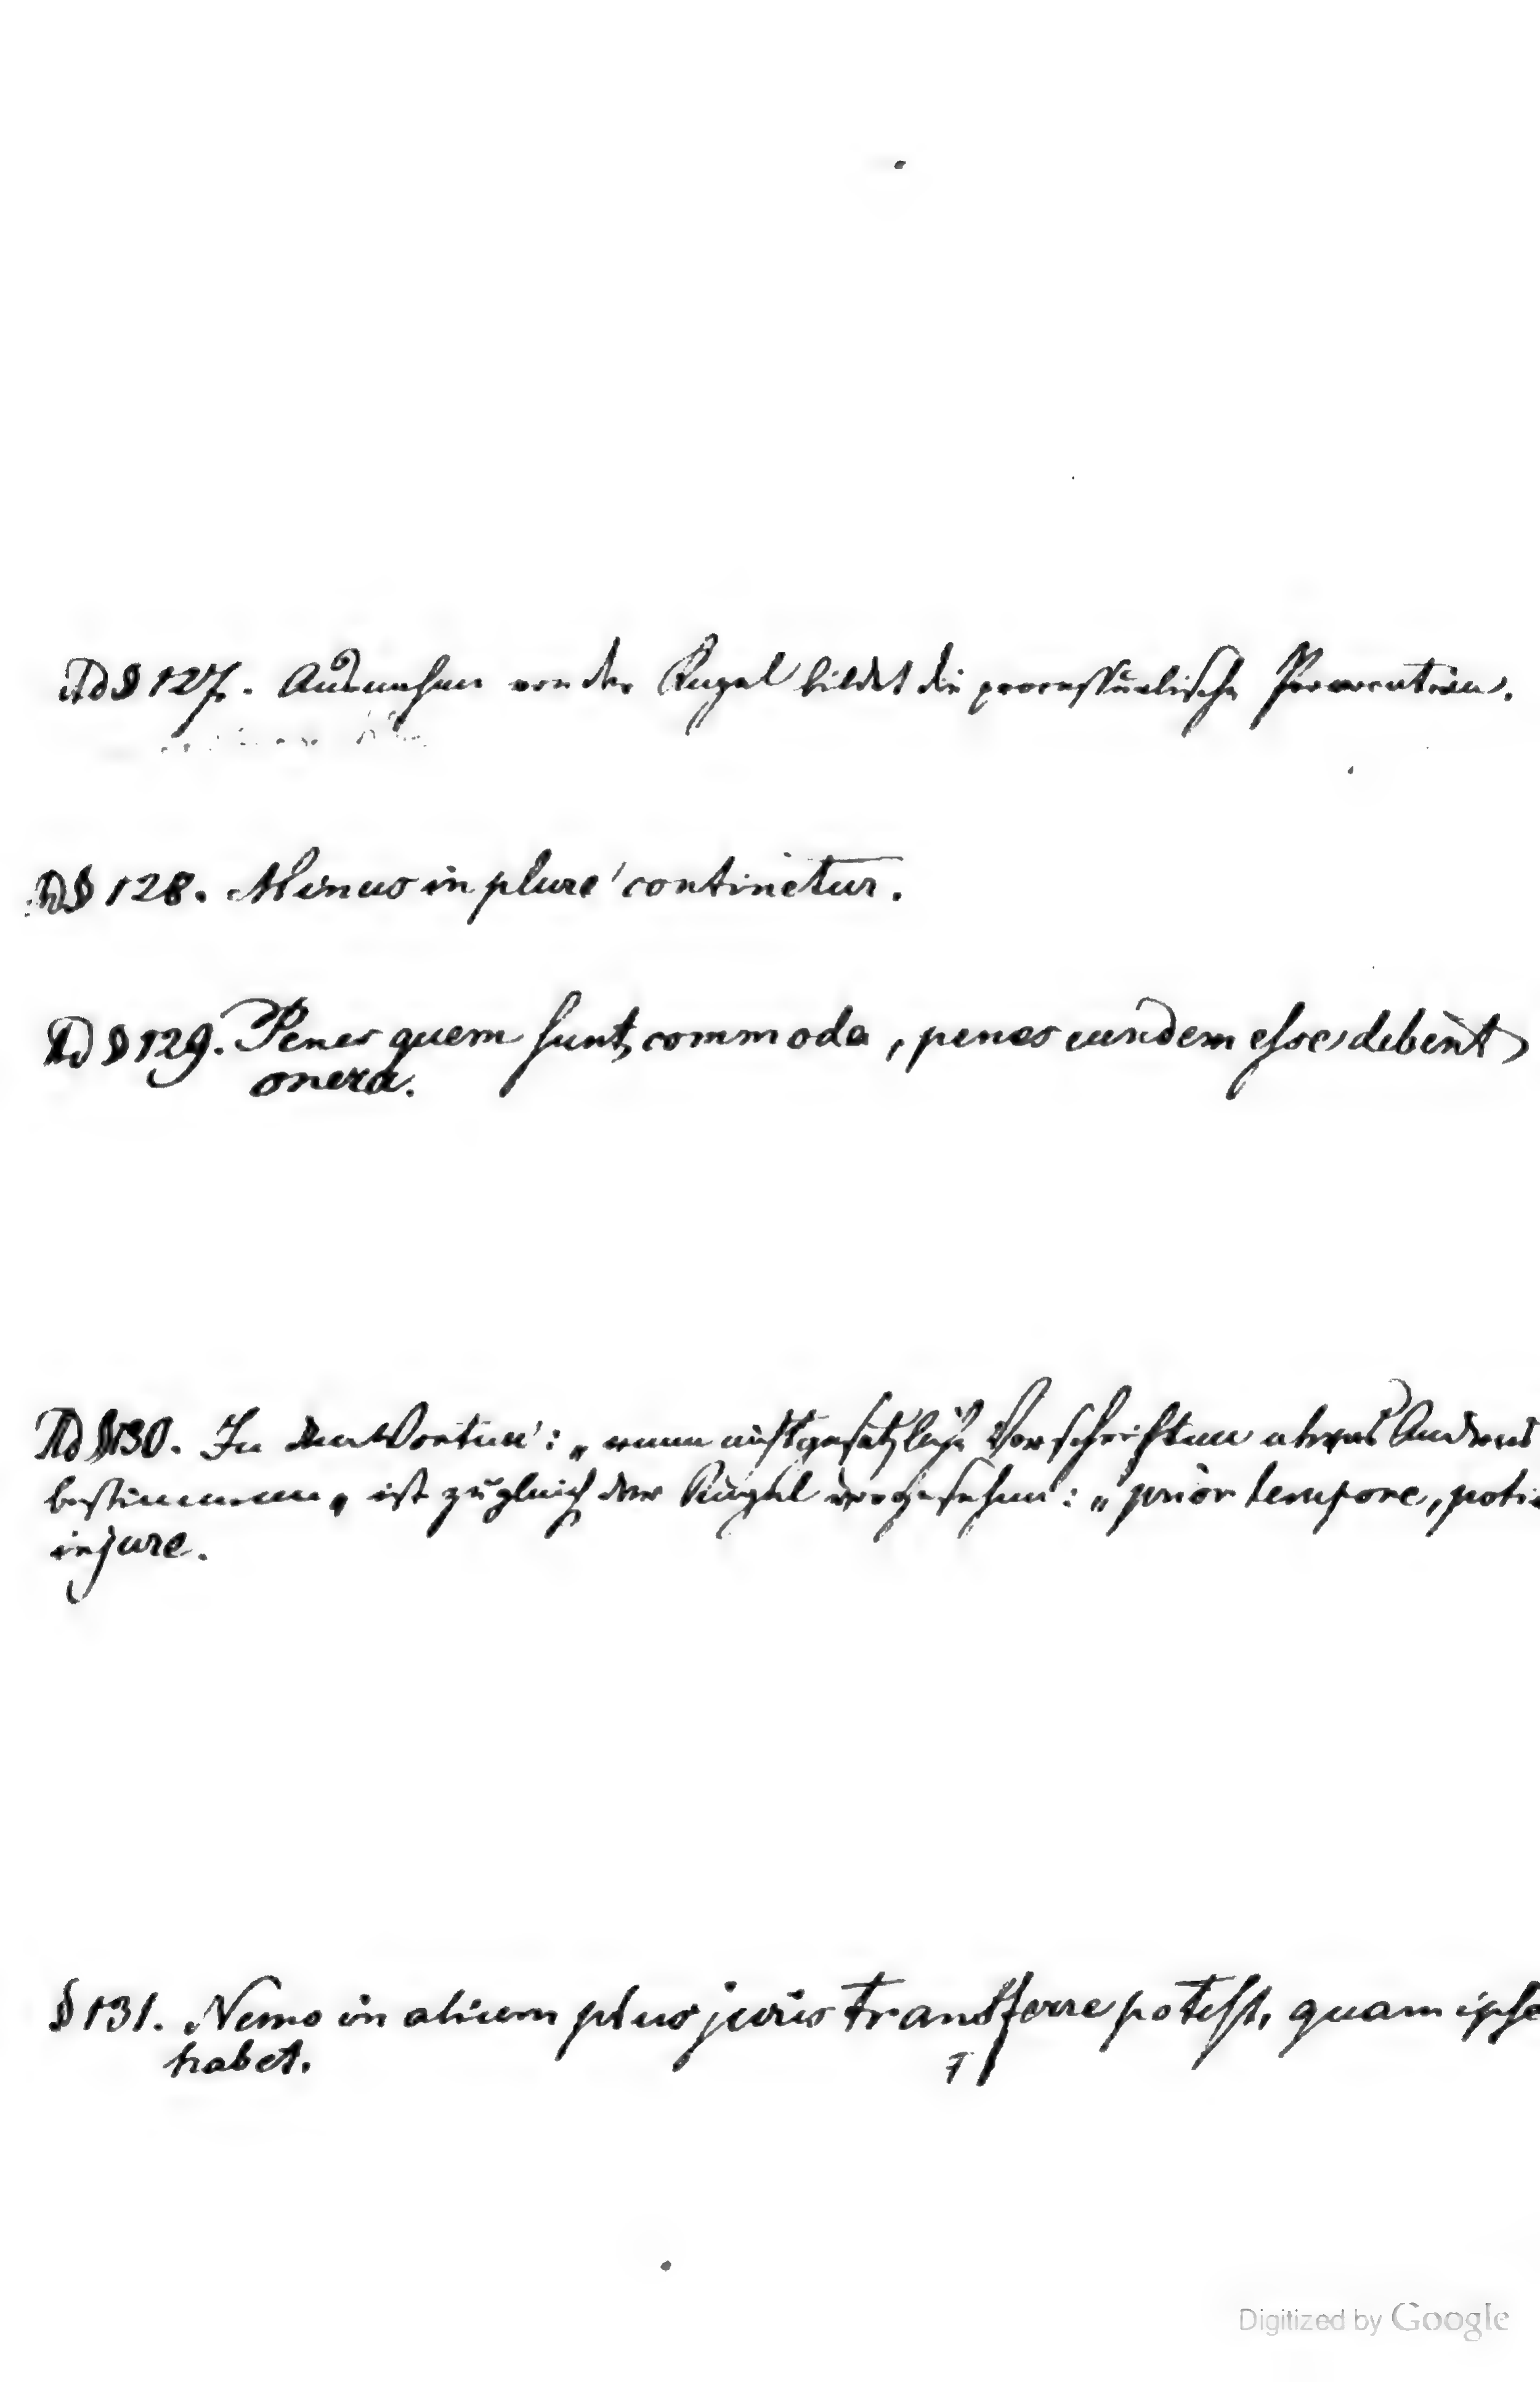 Ad § 127. Ausnahme von der Regel bildet die processualische Provocation.
Ad § 128. Minus in plure continetur.
Ad § 129. Penes quem sunt commoda, penes eundem esse debent
onera.
Ad § 130. In den Worten: „wenn nicht gesetzliche Vorschriften etwas Anderes
bestimmen„ ist zugleich der Regel vorgesehen: „prior tempore, poti
in jure.
§ 131. Nemo in alium plus juris transferre potest, quam ipse
habet.
Digitized by Google